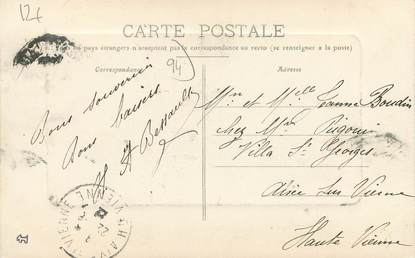 124
CARTE POSTALE
Tous les pays étrangers n'acceptent pas la correspondance au verso (se renseigner à la poste)
Correspondance
Adresse
94
Bons souvenirs
Bons baisers
A Bessault
Mme et Melle Jeanne Boudin
chez Mme
Villa St Georges
Aixe sur Vienne
Haute Vienne
VIENNE